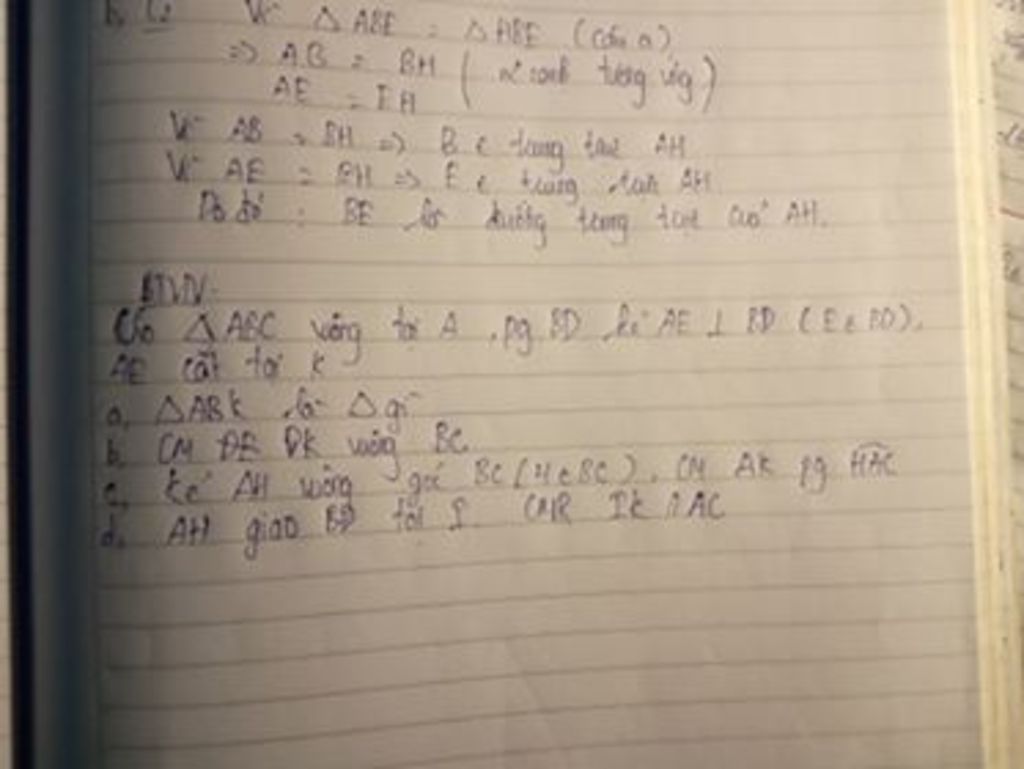 b, Vì △ABE = △HBE (câu a)
=> AB = BH ( 2 cạnh tương ứng )
AE = EH
Vì AB = BH => B ∈ trung trực AH
Vì AE = EH => E ∈ trung trực AH
Do đó : BE là đường trung trực của AH.
BTVN:
Cho △ABC vuông tại A , pg BD kẻ AE ⊥ BD ( E ∈ BD).
AE cắt tại K
a, △ABK là △ gì
b, CM DK vuông BC
c, kẻ AH vuông góc BC ( H ∈ BC ). CM AK pg HAC
d, AH giao BD tại I. CMR IK // AC